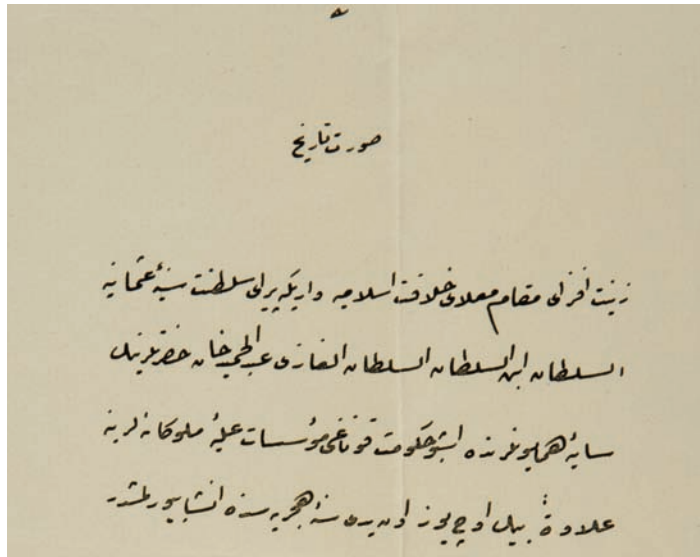 صورت تاریخ
زینت افزای مقام معلای خلافت اسلامیه و اریکه پیرای سلطنت سنیهٔ عثمانیه
السلطان ابن السلطان السلطان الغازی عبدالحمید خان حضرتلرینك
سایهٔ همایونلرنده اشبو حکومت قوناغی مؤسسات علیهٔ ملوکانه لرینه
علاوةً بیك اوچ یوز اون یدی سنهٔ هجریه سنده انشا بیورلمشدر